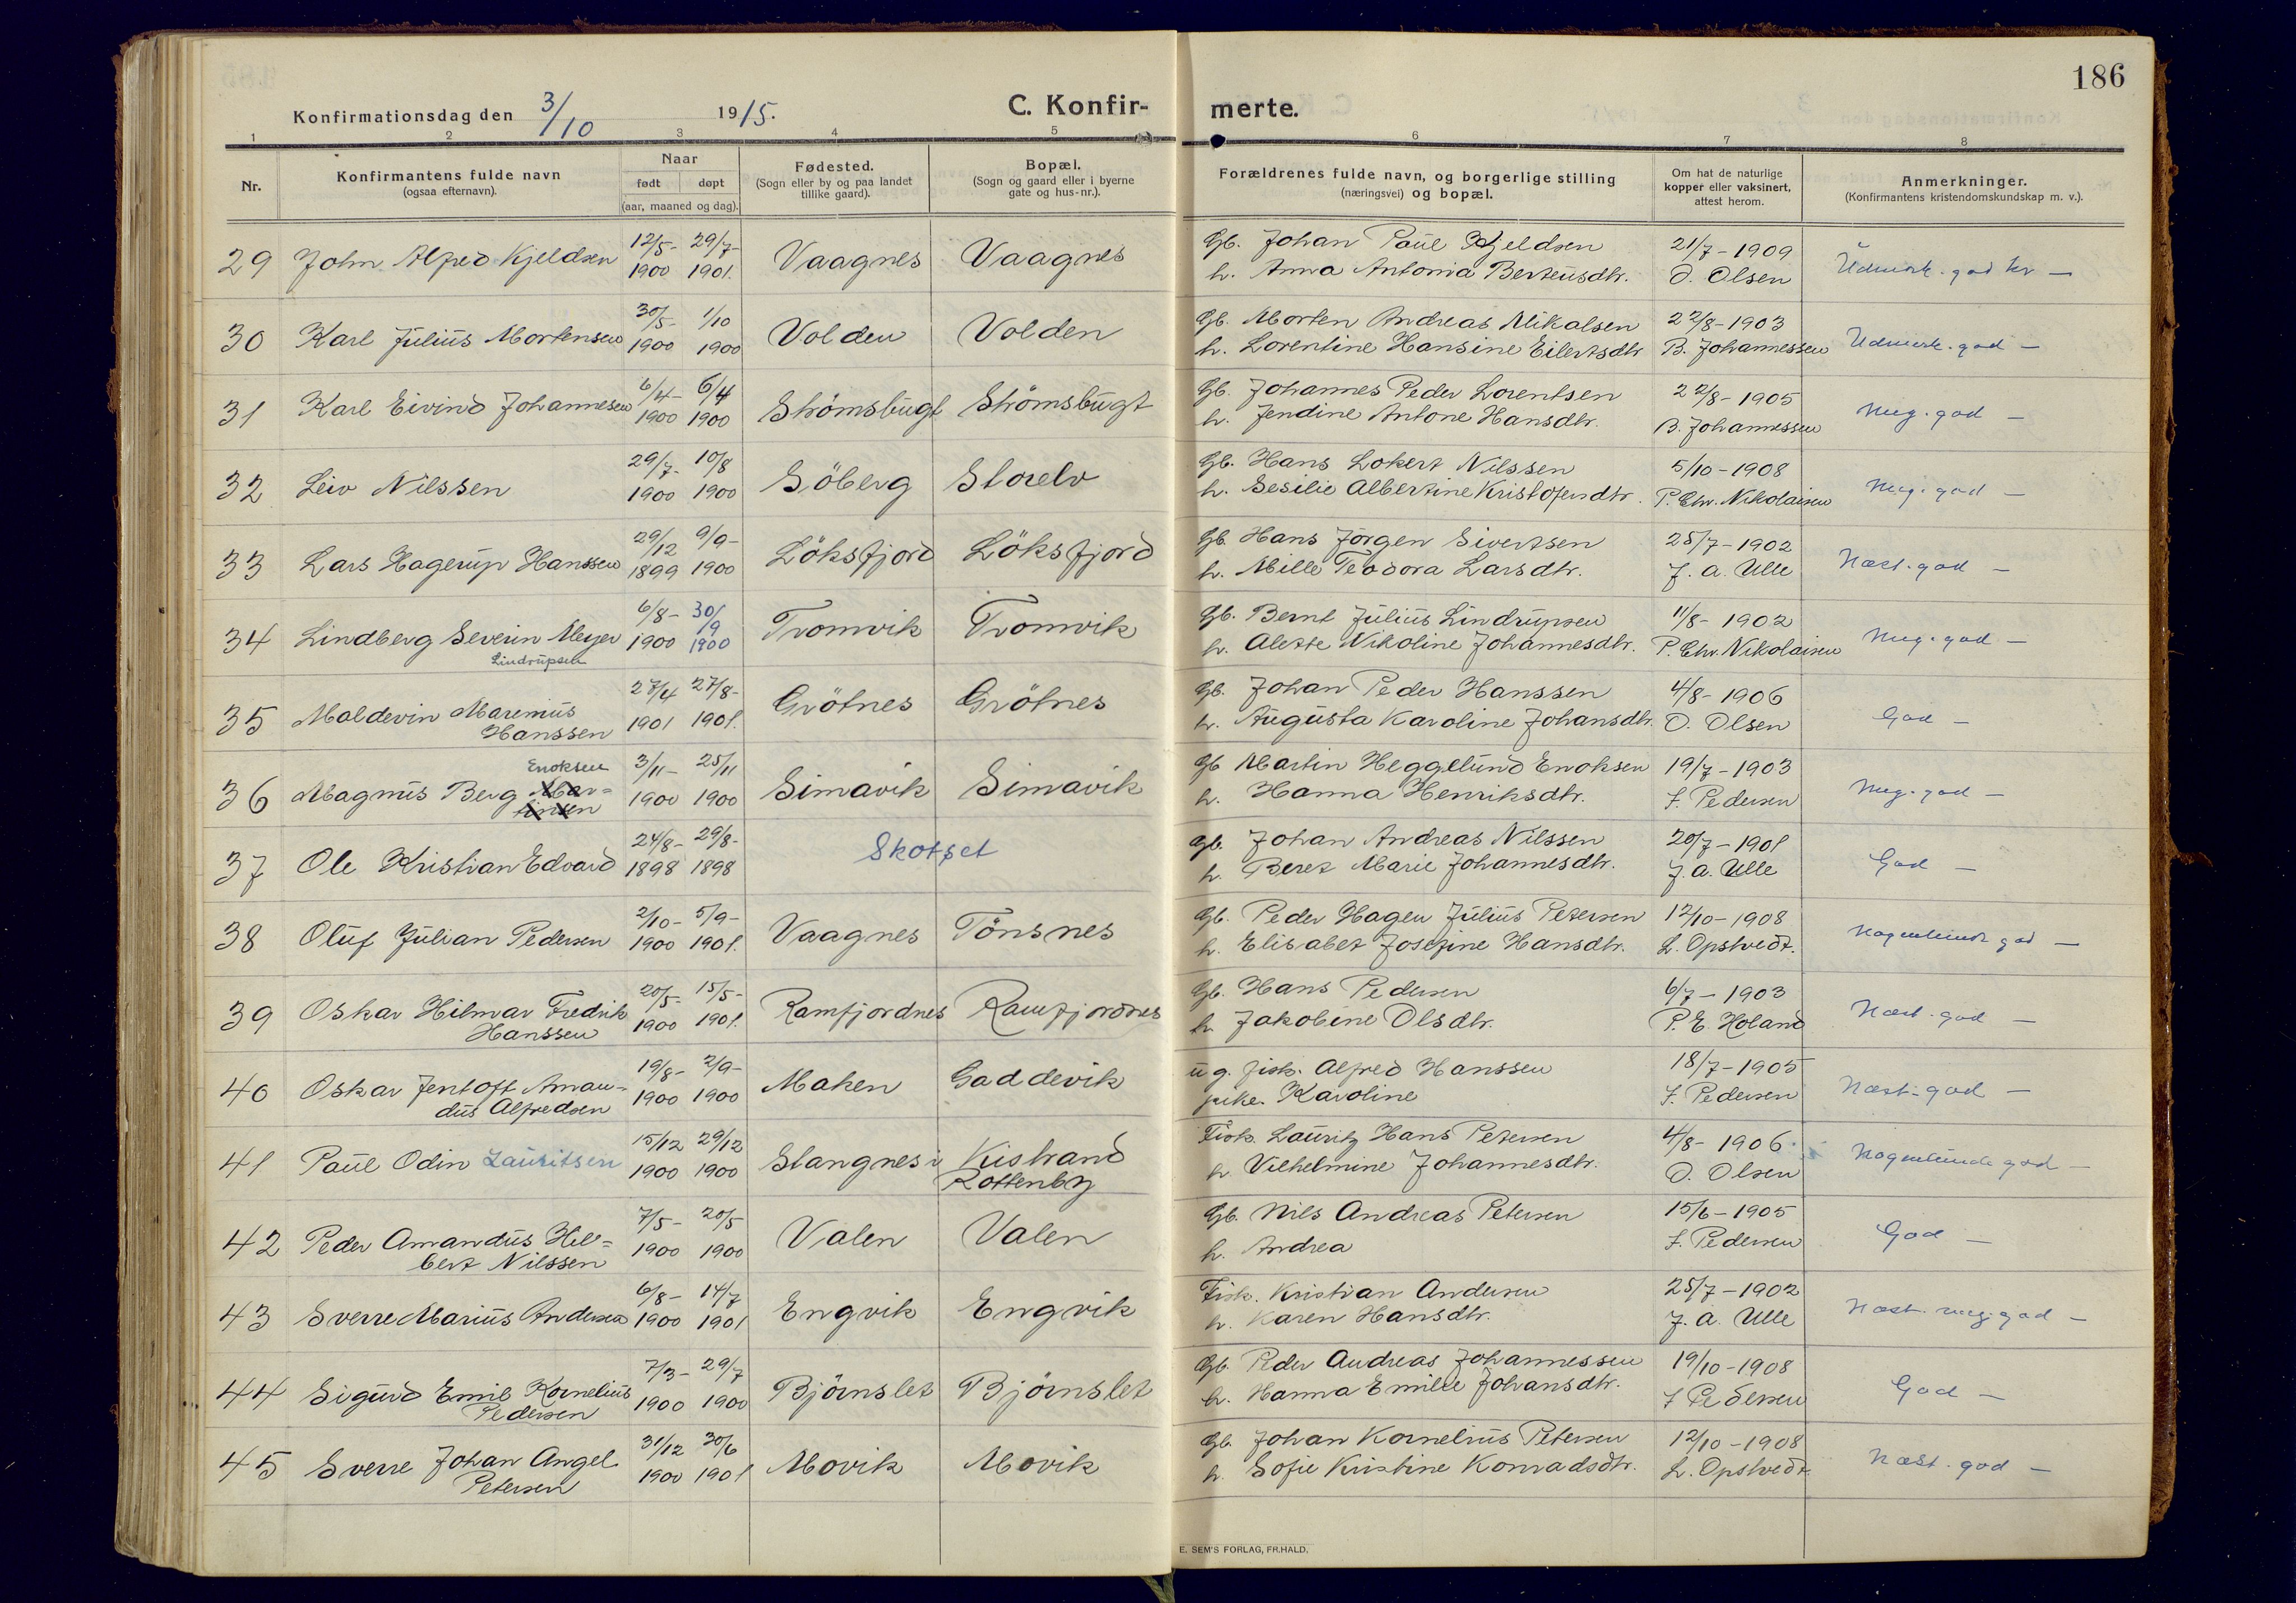 186
Konfirmationsdag den 3/10 1915. C. Konfir- merte.
1 2 3 4 5 6 7 8
Nr.
Konfirmantens fulde navn
(ogsaa efternavn).
Naar
født døpt
(aar, maaned og dag).
Fødested.
(Sogn eller by og paa landet
tillike gaard).
Bopæl.
(Sogn og gaard eller i byerne
gate og hus-nr.).
Forældrenes fulde navn, og borgerlige stilling
(næringsvei) og bopæl.
Om hat de naturlige
kopper eller vaksinert,
attest herom.
Anmerkninger.
(Konfirmantens kristendomskundskap m. v.).
12/5- 29/7- Gb. Johan Paul Kjeldsen 21/7-1909
29 John Alfred Kjeldsen 1900 1901. Vaagnes Vaagnes h. Anna Antonia Berteusdtr. O. Olsen Udmerk. god kr —
30/5- 1/10 Gb. Morten Andreas Mikalsen 22/8-1903
30 Karl Julius Mortensen 1900 1900 Volden Volden h. Lorentine Hansine Eilertsdtr B. Johannessen Udmerk. god —
6/4- 6/4 Gb. Johannes Peder Lorentsen 22/8-1905
31 Karl Eivind Johannesen 1900 1900 Strömsbugt Strömsbugt h. Jendine Antone Hansdtr. B. Johannessen Meg. god —
29/7- 10/8 Gb. Hans Lokert Nilssen 5/10-1908
32 Leiv Nilssen 1900 1900 Söberg Storelv h. Sesilie Albertine Kristofersdtr. P. Chr. Nikolaisen Meg. god —
29/12 9/9- Gb. Hans Jörgen Sivertsen 25/7-1902
33 Lars Hagerup Hanssen 1899 1900 Löksfjord Löksfjord h. Mille Teodora Larsdtr. J. A. Ulle Næst. god —
6/8- 30/9 Gb. Bernt Julius Lindrupsen 11/8-1902
34 Lindberg Severin Meyer 1900 1900 Tromvik Tromvik h. Alette Nikoline Johannesdtr. P. Chr. Nikolaisen Meg. god —
Lindrupsen
27/4 27/8- Gb. Johan Peder Hanssen 4/8-1906
35 Maldevin Maremius 1901 1901. Grötnes Grötnes h. Augusta Karoline Johansdtr. O. Olsen God —
Hanssen
Enoksen 3/11- 25/11 Gb Martin Heggelund Enoksen 19/7-1903
36 Magnus Berg Mar= 1900 1900 Simavik Simavik h. Hanna Henriksdtr. J. Pedersen Meg. god —
tinsen
24/8- 29/8- Skotset Gb. Johan Andreas Nilssen 20/7-1901
37 Ole Kristian Edvard 1898 1898 h. Beret Marie Johannesdtr. J. A. Ulle God —
2/10- 5/9- Gb. Peder Hagen Julius Petersen 12/10-1908
38 Oluf Julian Pedersen 1900 1901. Vaagnes Tönsnes h. Elisabet Josefine Hansdtr. L. Opstvedt. Nogenlunde god —
20/5- 15/5- Gb. Hans Pedersen 6/7-1903
39 Oskar Hilmar Fredrik 1900 1901. Ramfjordnes Ramfjordnes h. Jakobine Olsdtr. P. E. Holand Næst. god —
Hanssen
19/8- 2/9- ug. fisk. Alfred Hanssen 18/7-1905
40 Oskar Jentoft Aman- 1900 1900 Maken Gaddevik pike. Karoline J. Pedersen Næst. god —
dus Alfredsen
15/12 29/12 Fisk. Lauritz Hans Petersen 4/8-1906.
41 Paul Odin Lauritsen 1900 1900 Stangnes i Kistrand h Vilhelmine Johannesdtr. O. Olsen Nogenlunde god —
Rottenby
7/5- 20/5 Gb. Nils Andreas Petersen 15/6-1905
42 Peder Amandus Hil= 1900 1900 Valen Valen h. Andrea J. Pedersen God —
bert Nilssen
6/8- 14/7 Fisk. Kristian Andersen 25/7-1902
43 Sverre Marius Andersen 1900 1901 Engvik Engvik h. Karen Hansdtr. J. A. Ulle Næst. meg. god —
7/3- 29/7 Gb. Peder Andreas Johannessen 19/10-1908
44 Sigurd Emil Kornelius 1900 1900 Björnslet Björnslet h. Hanna Emilie Johansdtr. J Pedersen God —
Pedersen
31/12 30/6 Gb. Johan Kornelius Petersen 12/10-1908
45 Sverre Johan Angel 1900 1901 Movik Movik h. Sofie Kristine Konradsdtr. L. Opstvedt. Næst. god —
Petersen
E. SEM'S FORLAG, FR.HALD.